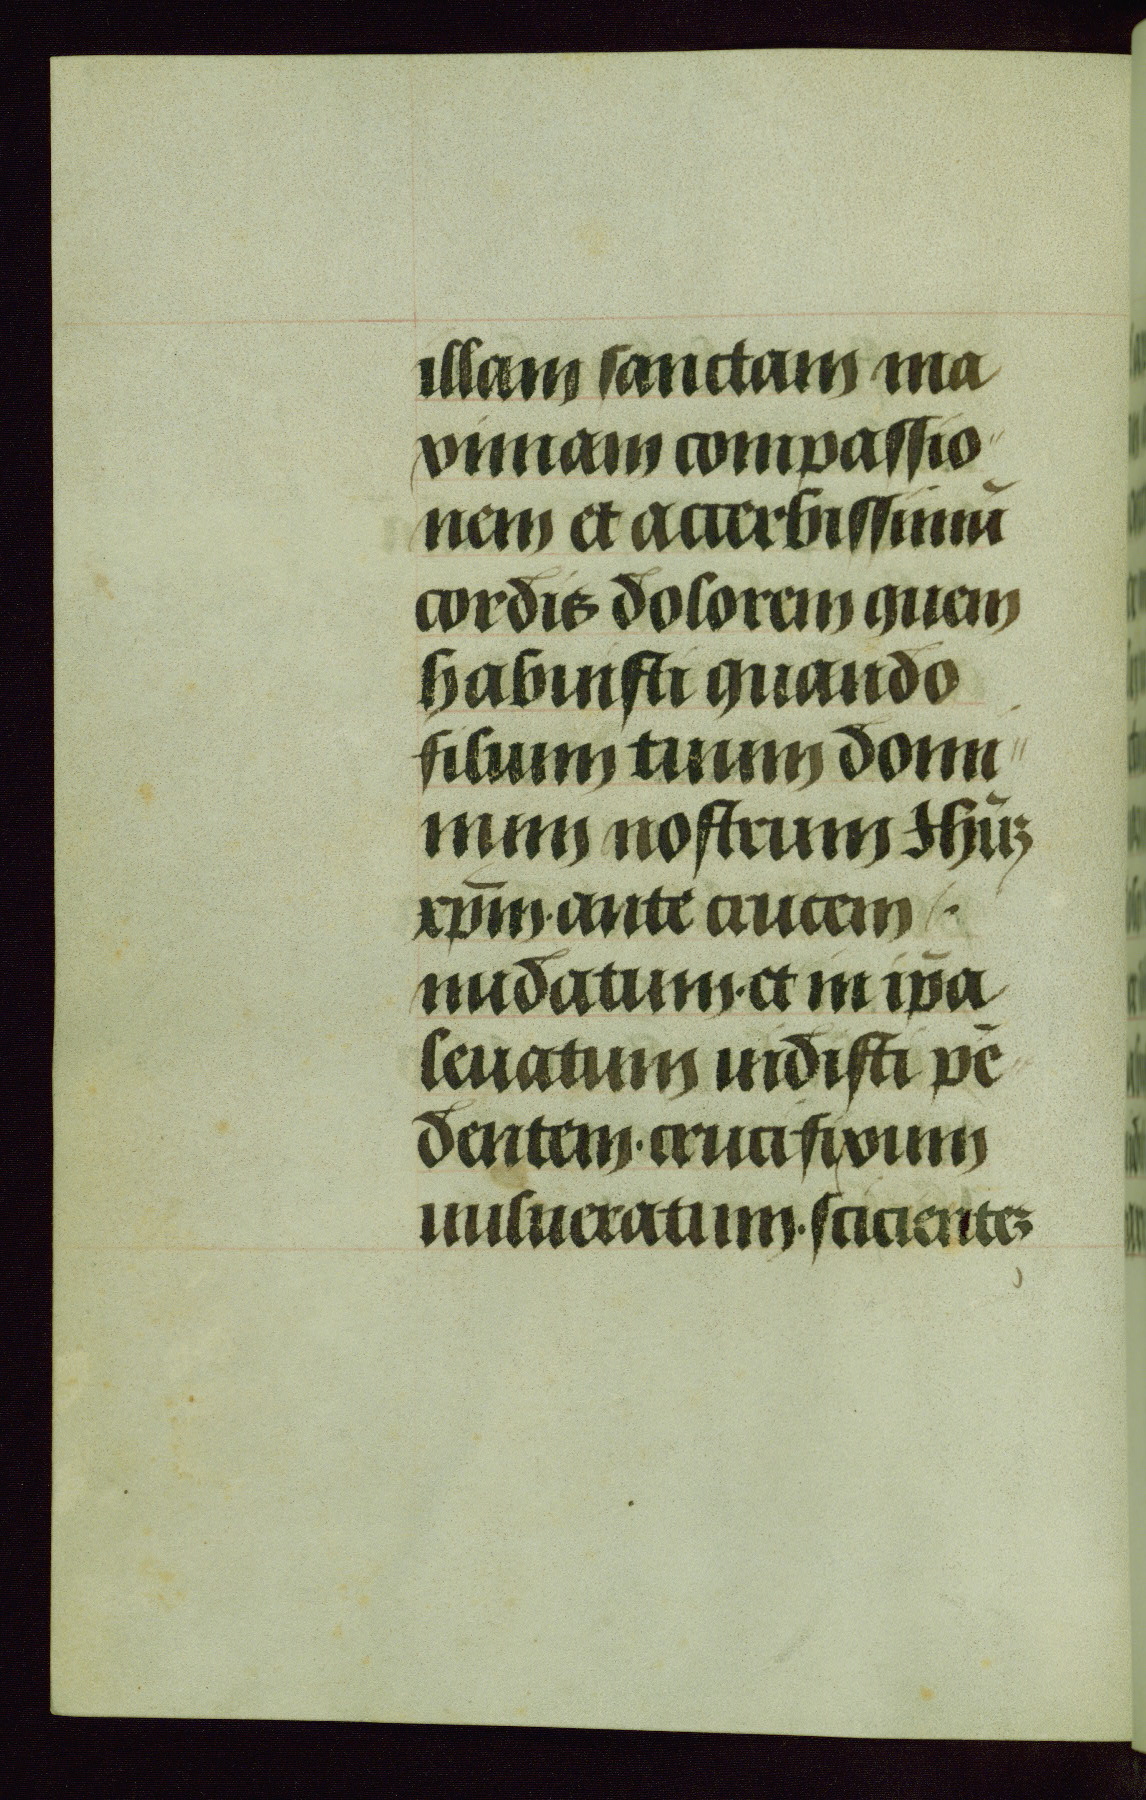 illam sanctam ma
ximam compassio"
nem et acerbissimū
cordis dolorem quem
habuisti quando
filium tuum domi"
num nostrum Ihūz
xp̄m·ante crucem
nudatum·et in ip̄a
leuatum uidisti pē
dentem·crucifixum
uulneratum·scicientez